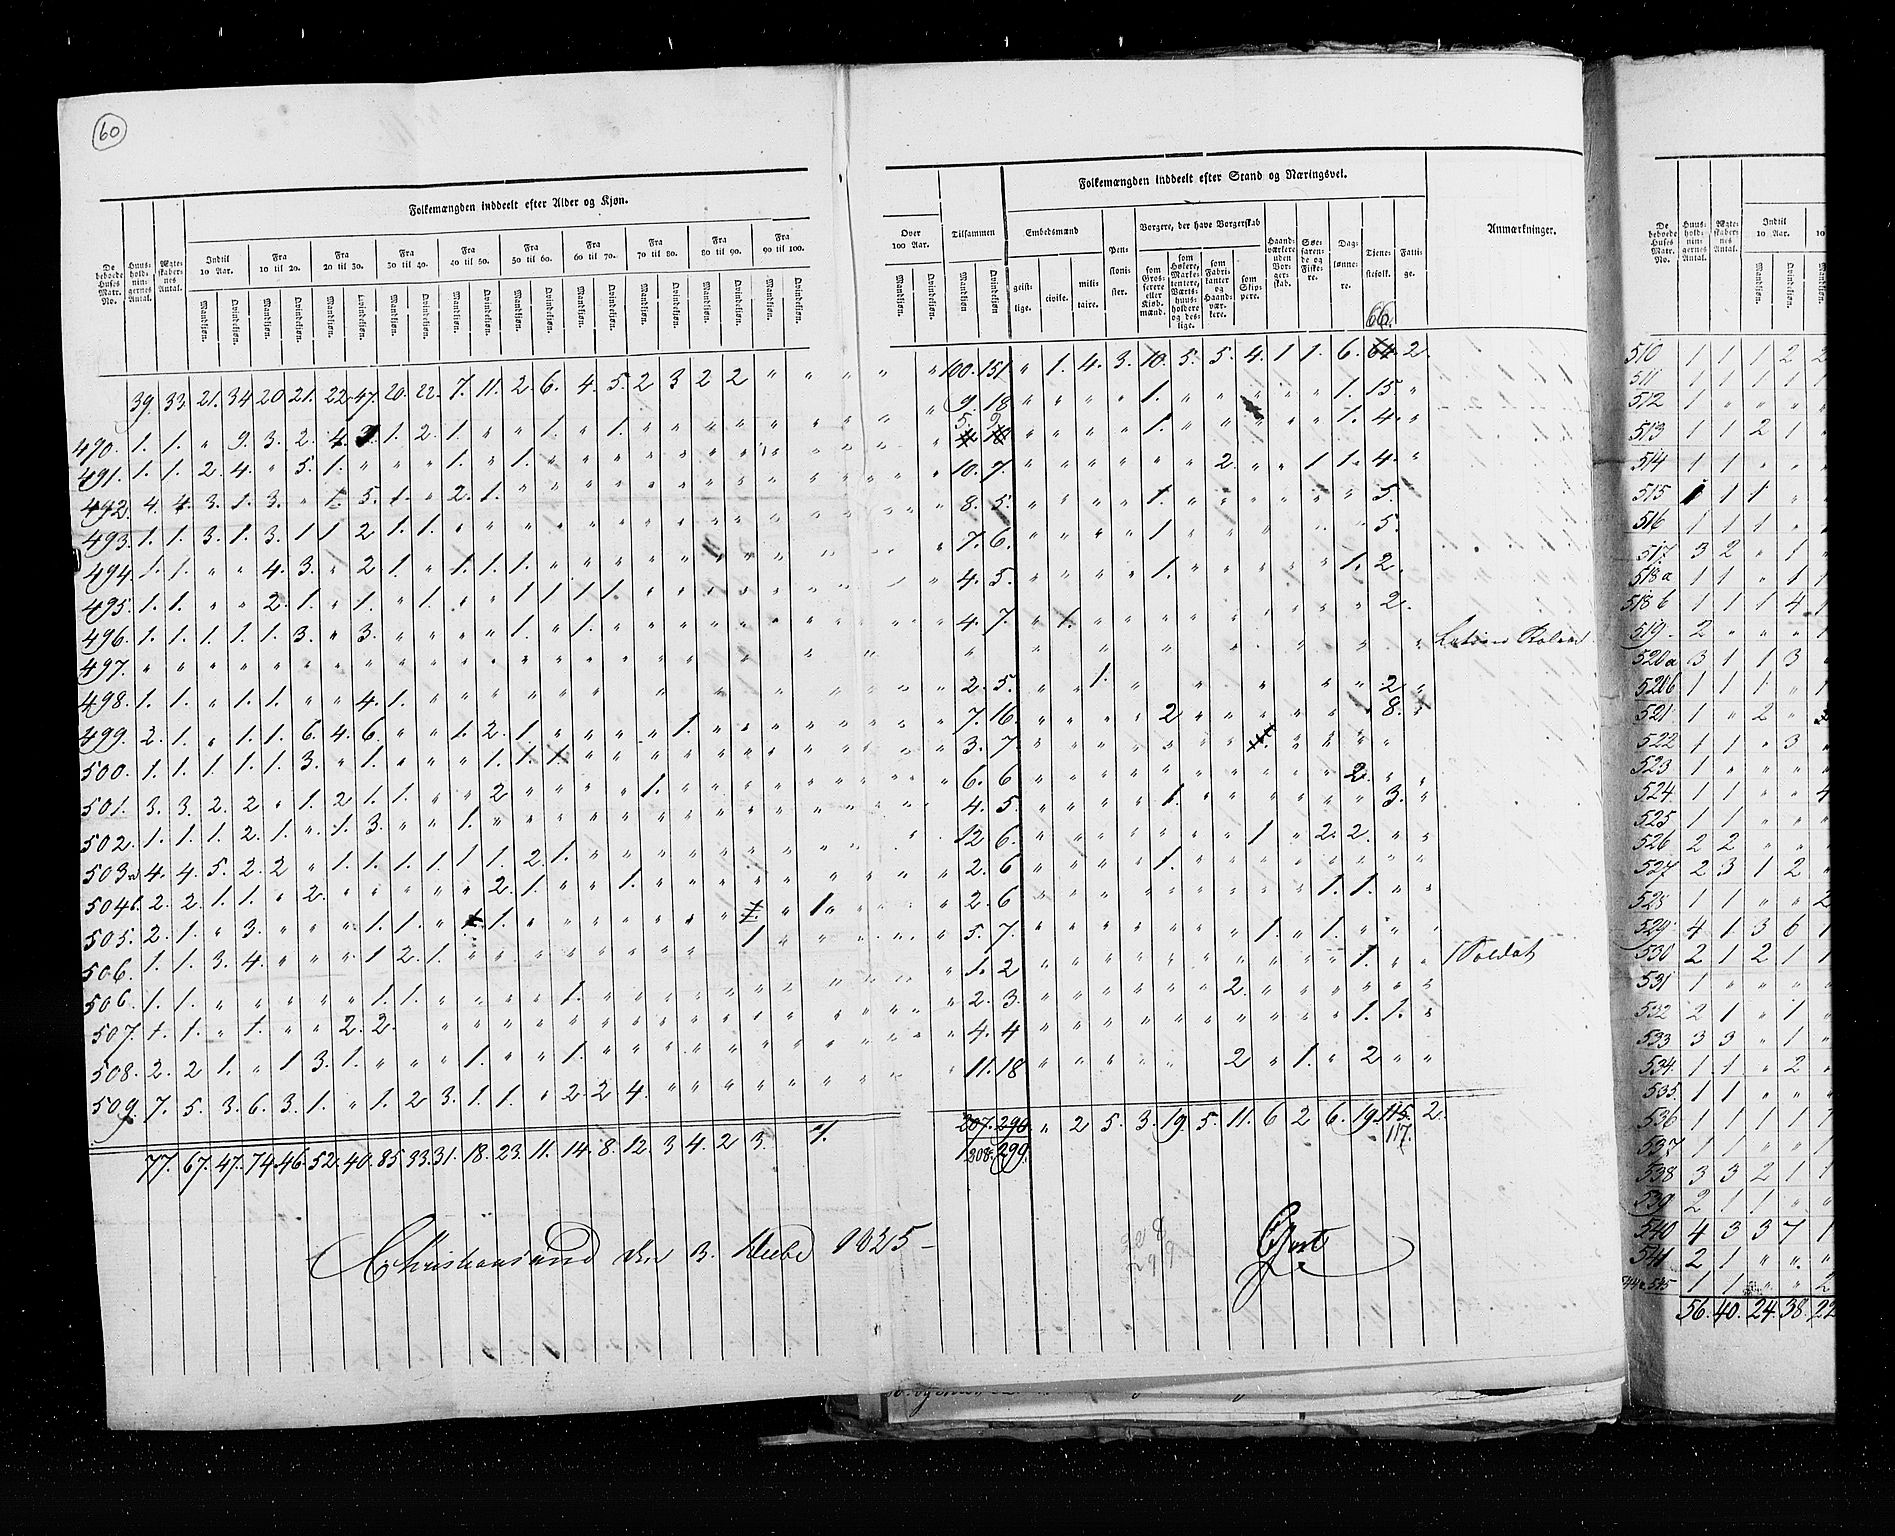 60
Folkemængden inddeelt efter Alder og Kjøn.
De beboede Huses Matr. No. | Huus-holdningernes Antal. | Ægteskabernes Antal. | Indtil 10 Aar. | Fra 10 til 20. | Fra 20 til 30. | Fra 30 til 40. | Fra 40 til 50. | Fra 50 til 60. | Fra 60 til 70. | Fra 70 til 80. | Fra 80 til 90. | Fra 90 til 100.
Mandkjøn. Qvindekjøn. Mandkjøn. Qvindekjøn. Mandkjøn. Qvindekjøn. Mandkjøn. Qvindekjøn. Mandkjøn. Qvindekjøn. Mandkjøn. Qvindekjøn. Mandkjøn. Qvindekjøn. Mandkjøn. Qvindekjøn. Mandkjøn. Qvindekjøn. Mandkjøn. Qvindekjøn.
39. 33. 21. 34 20. 21. 22. 47. 20. 22. 7. 11. 2 6. 4. 5. 2 3 2 2 " "
470. 1. 1. " 9. 3. 2. 4. 3. 1. 2. 1. " " 1. " 1. " " " " " "
491. 1. 1. 2. 4. " 5. 1. " " " 1. " 1. " " " " " " " " "
492. 4. 4. 3. 1. 3. " 1. 5. 1. " 2. 1. " " " " " " " " " "
493. 1. 1. 3. 1. 3. 1 1 2 1. 1. " " " " " " " " " " " "
494. 1. 1. " " 4. 3. " 2 1. " 1. 1. 1. " " " " " " " " "
495. 1. 1. " " 2. 1. " 1. " 1. " " 1 1 1 1. " " " " " "
496. 1. 1. 1. 1. 1. 3. " 3. " " " " 1. " 1. " " " " " " "
497. " " " " " " " " " " " " " " " " " " " " " "
498. 1. 1. " 1. 1. " " 4. 1. " " " " " " " " " " " " "
499. 2. 1. " 1. 1. 6. 4. 6. " " 1. 2. 1. " " " " 1. " " " "
500. 1. 1. 1. 1. 1. 3. " 1. " " " 1. 1. 1 " " " " " " " "
501. 3. 3. 2. 2 " 1. 2 1. 1. " " 2 " " " " 1. " " " " "
502. 1. 1. 1. 2. 1. " 1. 3. " " 1. " " " " " " " " " " "
503a 4. 4. 5. 2. 2 " 1. 1. 1. 1. 1 1. 2. 1. " " " " " " " "
504b. 2. 2. 1. 1. " 2. " " " " " 2. 1. " " 1. " " " " " "
505. 2. 1. " 3. " " " 1. 1. " 1. 1. " " " " " " " " " 1
506. 1. 1. 3. 4. " " " 1 2. 1. " " " " " " " " " 1 " "
506. 1. 1. " " " " " 1. 1. " " " " 1. " " " " " " " "
507. 1. 1. " 1. " " 2. 2. " " " " " " " " " " " " "
508. 2. 2 1. " 1 3. 1. " " " 1. " " 1. " " " " " " " "
509. 7. 5. 3. 6. 3. 1. " 1. 2 3. 1. 1. " 2 2 4. " " " " " "
77. 67. 47. 74. 46. 52. 40. 85. 33. 31. 18. 23. 11. 14. 8. 12. 3 4. 2 3. 1.
Christiansand den 3. 1825 –
Over 100 Aar. | Tilsammen | Folkemængden inddeelt efter Stand og Næringsvei.
Mandkjøn Qvindekjøn. Mandkjøn Qvindekjøn.
Embedsmænd | geistlige. | civile. | militaire. | Pensionister. | Borgere, der have Borgerskab | som Grosserere eller Kjøbmænd. | som Høkere, Marketentere, Værtshuusholdere og deslige. | som Fabrikanter og Haandværkere. | som Skippere. | Haandværkere uden Borgerskab. | Søefarende og Fiskere. | Daglønnere. | Tjenestefolk. | Fattige. | Anmærkninger.
66.
" 100. 151 " 1. 4. 3. 10. 5. 5. 4. 1 1. 6. 64. 2.
" 9. 18 " " " " 1. " " " " " 1. 15. "
5. 9 " " " " 1. " " " " " 1. 4. "
" 10. 7. " " " " " " 2. " " 1 1. 4. "
8. 5. " " " " 1. " " " " " " 5.
" 7. 6. " " " " 1 " " " " " 5.
" 4. 5. " " " " 1. " " " " " 1. 2.
4. 7. " 1. " " " " " " " " " 2.
" " " " " " " " " " Latin
2. 5. " " 1. " " " " " " 2 "
7. 16. " " " " 2 " " " " " " 8. "
3. 7. " " " " " " " " " " "
6. 6 " " " " " " " " " " 2. " "
4. 5. " " " " 1. " " " " " " 3. "
12 6. " " " " " " " 1 " 2. 2. " "
" 2. 6 " " " " 1. " " " " " " " "
" 2. 6 " " " " " " " " " 1. 1. " "
" 5. 7. " " " " " " " 1. " 1. " " "
" 1. 2 " " " " " " " " " " 1. " " 1 Soldat
" 2. 3. " " " " " " 2. " " " " " "
" 4. 4 " " " " " " " " " " 1. 1. "
" 11. 18 " " " " " " 2 " 1. " 2 " "
207. 296 " 2 5. 3. 19. 5. 11. 6 2 6. 19. 115. 2.
208. 299. 117.
208
299
De beboede Huses Matr. No. | Huusholdningernes Antal. | Ægteskabernes Antal. | Indtil 10 Aar. | 10
Mandkjøn. Qvindekjøn. Mandkjøn
510 1 1 1 2 2
511 1 1 1 1 1
512 1 " " " "
513 1 1 2 1 "
514 1 1 " " "
515 1 1 1 " "
516 1 1 1 " "
517. 3 2 " 1 "
518a 1 1 " 1 1
518b 1 1 1 4 1
519. 2 " " " 1
520a 3 1 1 3 "
520b 1 1 1 " 1
521 1 " 2 " 3
522 1 1 " 3 "
523 1 " " " "
524. 1 1 " " 4
525 1 1 " " "
526 2 2 " " "
527 2 3 1 2 "
528 1 1 " " 2
529. 4 1 3 6 1
530 2 1 2 1 1
531 1 " " " "
532 2 1 " 1 "
533 3 3 " 1 "
534. 1 1 " 2 "
535. 1 1 " " "
536 1 1 1 1 1
537 1 1 " " 1
538 3 3 2 1 1
539 2 1 1 " "
540 4 3 3 7 1
541 2 1 " " "
544 & 545 1 1 " " 2
56. 40. 24. 38. 22